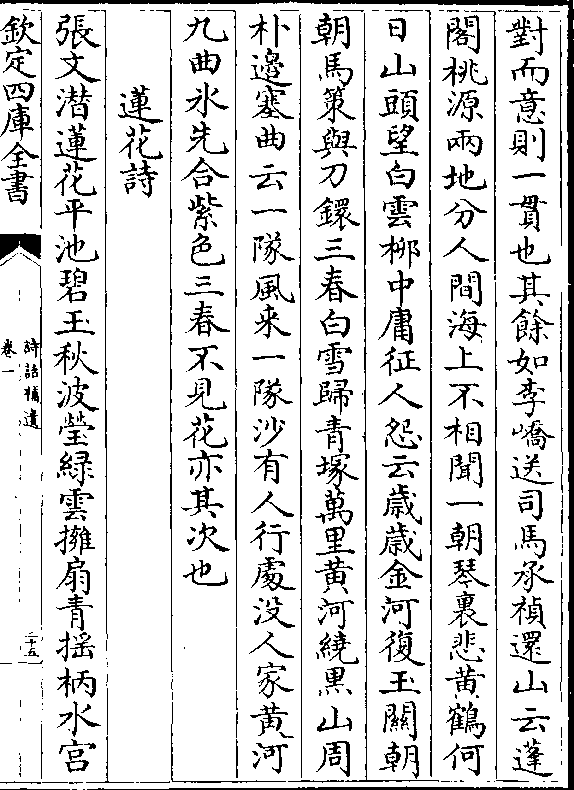 對而意則一貫也其餘如李嶠送司馬承禎還山云蓬
閣桃源兩地分人間海上不相聞一朝琴裏悲黄鶴何
日山頭望白雲栁中庸征人怨云歲歲金河復玉關朝
朝馬策與刀鐶三春白雪歸青塚萬里黄河繞黒山周
朴邉塞曲云一隊風来一隊沙有人行處没人家黄河
九曲氷先合紫色三春不見花亦其次也
蓮花詩
張文潜蓮花平池碧玉秋波瑩緑雲擁扇青揺柄水宫
欽定四庫全書
詩話補遺
卷一
二十五